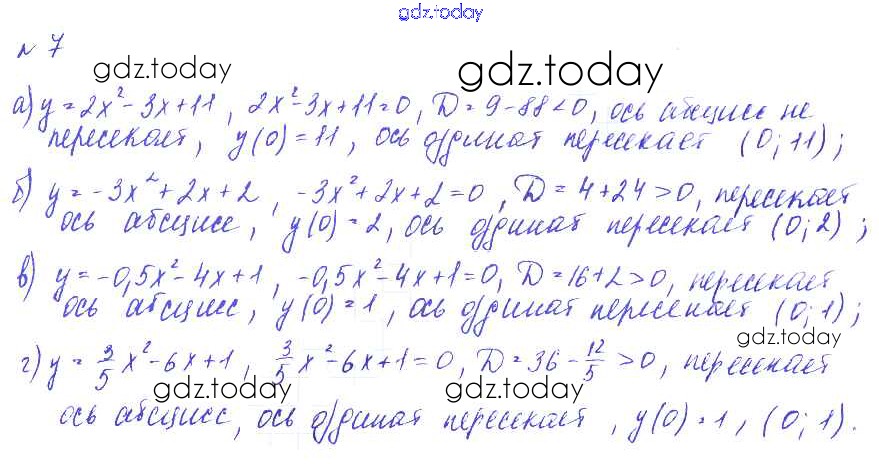 gdz.today
№ 7
gdz.today
gdz.today
а) y = 2x² - 3x + 11, 2x² - 3x + 11 = 0, D = 9 - 88 < 0, ось абсцисс не
пересекает, y(0) = 11, ось ординат пересекает (0; 11);
б) y = -3x² + 2x + 2, -3x² + 2x + 2 = 0, D = 4 + 24 > 0, пересекает
ось абсцисс, y(0) = 2, ось ординат пересекает (0; 2);
в) y = -0,5x² - 4x + 1, -0,5x² - 4x + 1 = 0, D = 16 + 2 > 0, пересекает
ось абсцисс, y(0) = 1, ось ординат пересекает (0; 1);
gdz.today
г) y = 3/5 x² - 6x + 1, 3/5 x² - 6x + 1 = 0, D = 36 - 12/5 > 0, пересекает
gdz.today
gdz.today
ось абсцисс, ось ординат пересекает, y(0) = 1, (0; 1).